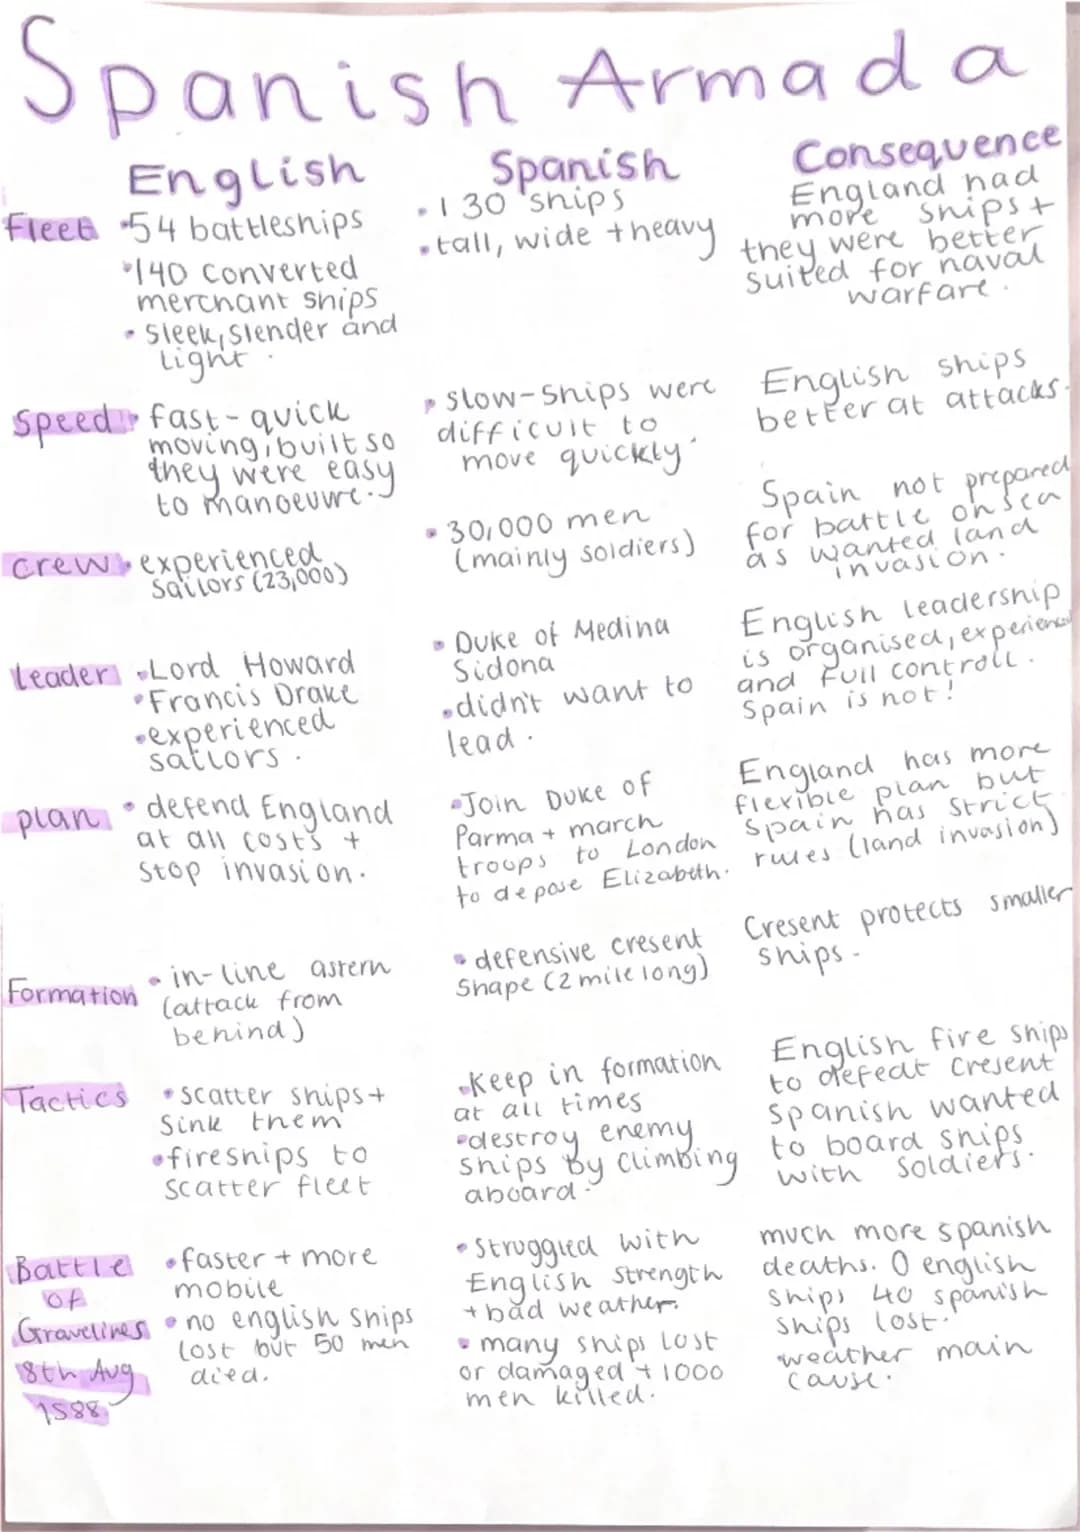 Spanish Armada
English
Spanish
Consequence
Fleet
•54 battleships
•140 converted
merchant ships
• Sleek, slender and
light.
•130 ships
•tall, wide + heavy
England had
more ships +
they were better
suited for naval
warfare.
Speed
• fast-quick
moving, built so
they were easy
to manoeuvre.
• slow-ships were
difficult to
move quickly.
English ships
better at attacks.
crew
• experienced
Sailors (23,000)
• 30,000 men
(mainly soldiers)
Spain not prepared
for battle on sea
as wanted land
invasion.
leader
•Lord Howard
•Francis Drake
•experienced
sailors.
• Duke of Medina
Sidona
•didn't want to
lead.
English leadership
is organised, experienced
and full controll.
Spain is not!
plan
• defend England
at all costs +
stop invasion.
•Join Duke of
Parma + march
troops to London
to depose Elizabeth.
England has more
flexible plan but
Spain has strict
rules (land invasion)
Formation
• in-line astern
(attack from
behind)
• defensive cresent
Shape (2 mile long)
Cresent protects smaller
ships.
Tactics
• scatter ships +
Sink them
•fireships to
scatter fleet
•Keep in formation
at all times
•destroy enemy
ships by climbing
aboard.
English fire ships
to defeat cresent
spanish wanted
to board ships
with soldiers.
Battle
of
Gravelines
8th Aug
1588
•faster + more
mobile
• no english ships
lost but 50 men
died.
• Struggled with
English strength
+ bad weather.
• many ships lost
or damaged + 1000
men killed.
much more spanish
deaths. 0 english
ships 40 spanish
ships lost.
weather main
cause.